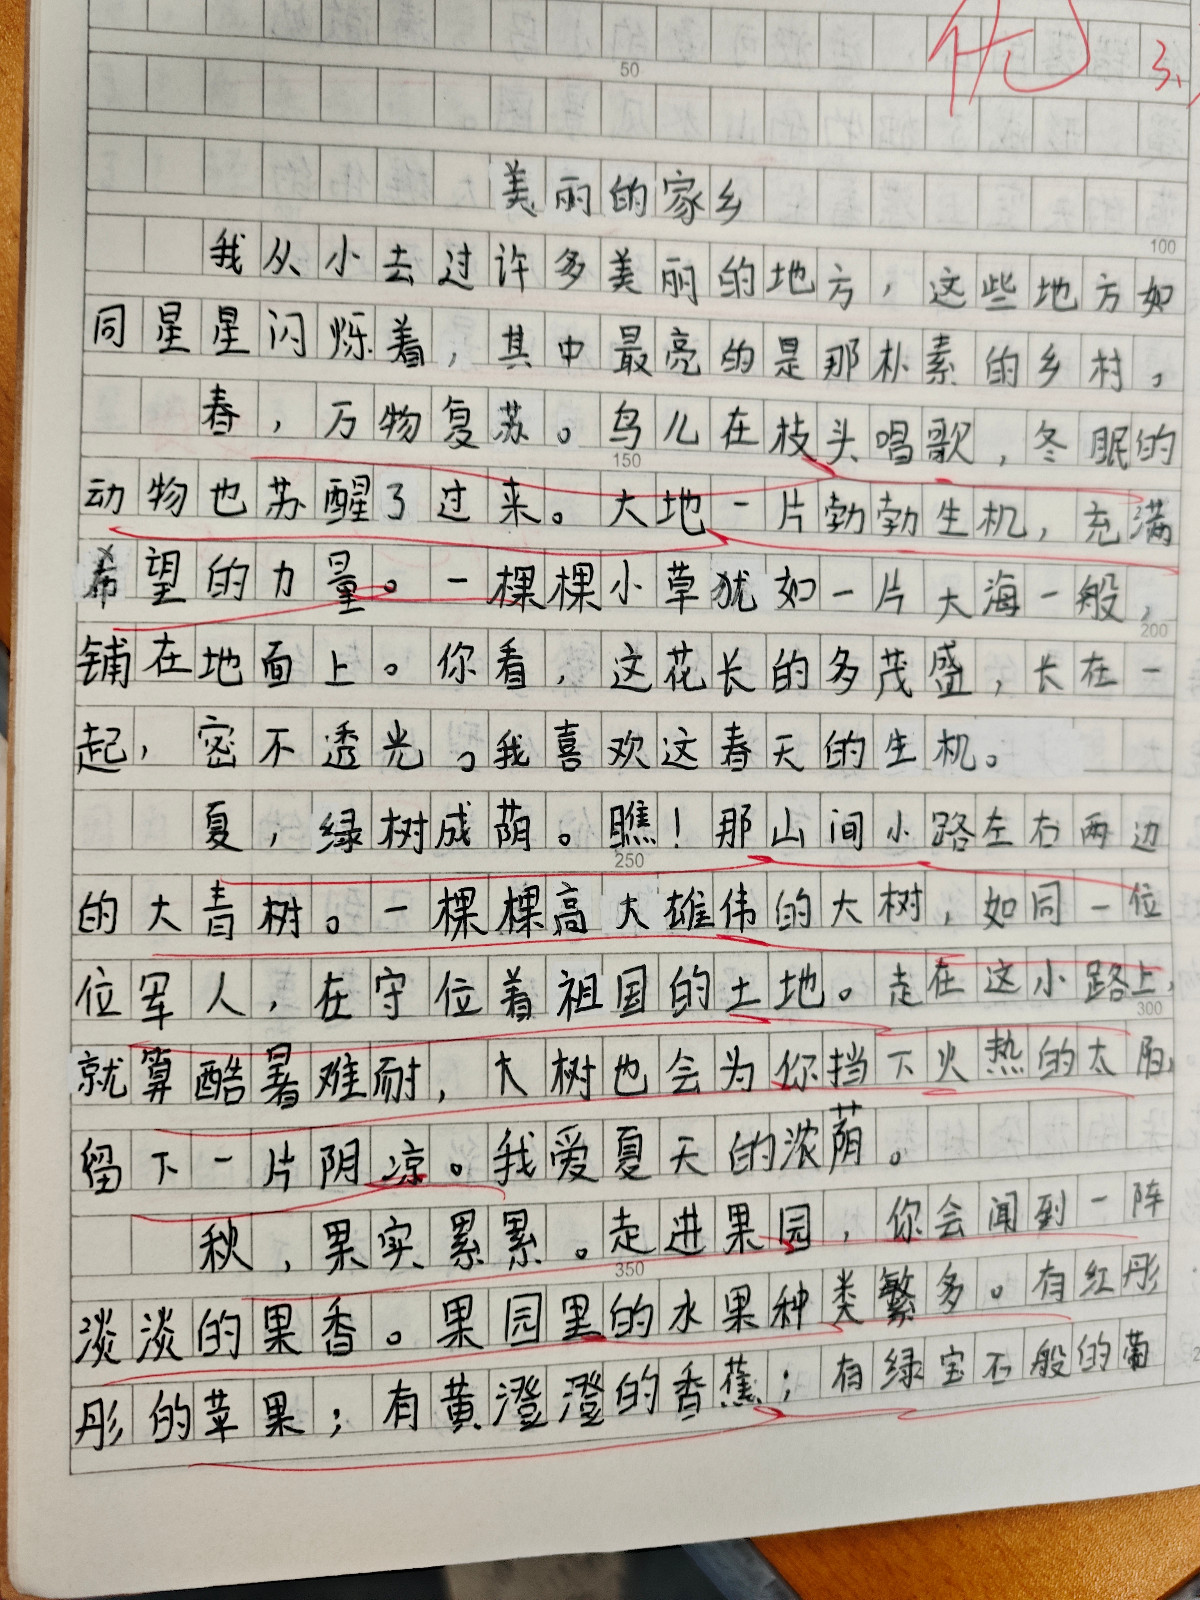 优
50
美丽的家乡
100
我从小去过许多美丽的地方，这些地方如
同星星闪烁着，其中最亮的是那朴素的乡村。
春，万物复苏。鸟儿在枝头唱歌，冬眠的
150
动物也苏醒了过来。大地一片勃勃生机，充满
希望的力量。一棵棵小草犹如一片大海一般，
200
铺在地面上。你看，这花长的多茂盛，长在一
起，密不透光。我喜欢这春天的生机。
夏，绿树成荫。瞧！那山间小路左右两边
250
的大青树。一棵棵高大雄伟的大树，如同一位
位军人，在守位着祖国的土地。走在这小路上，
300
就算酷暑难耐，大树也会为你挡下火热的太阳，
留下一片阴凉。我爱夏天的浓荫。
秋，果实累累。走进果园，你会闻到一阵
350
淡淡的果香。果园里的水果种类繁多。有红彤
彤的苹果；有黄澄澄的香蕉；有绿宝石般的葡